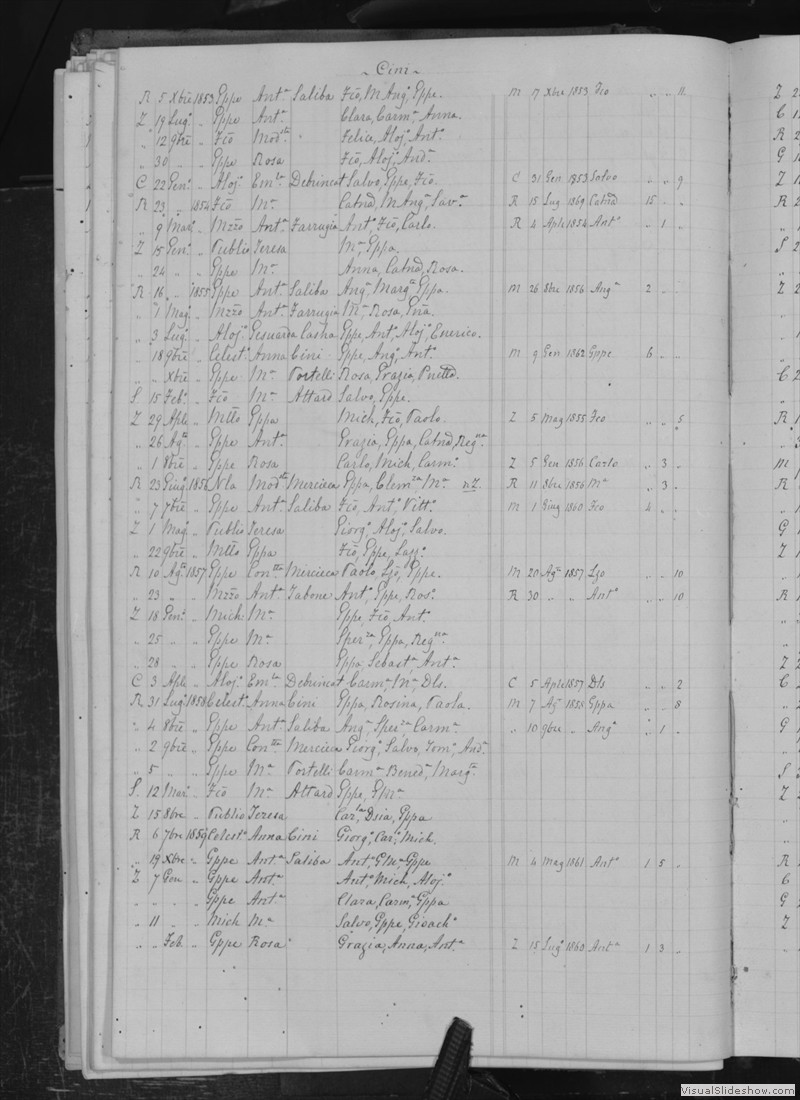 ~ Cini ~
R 5 Xbre 1853 Gppe Antª Saliba Fco, M Angª, Gppe. M 17 Xbre 1853 Fco „ „ 11
Z 19 Lugº „ Gppe Antª Clara, Carmª, Anna.
„ 12 9bre „ Fco Modsta „ Felice, Alojº, Antº.
„ 30 „ „ Gppe Rosa Fco, Alojº, Andª.
C 22 Genº „ Alojº Emlª Debrincat Salvº, Gppe, Fco. C 31 Gen 1853 Salvo „ „ 9
R 23 „ 1854 Fco Mª Catnª, M Angª, Savª. R 15 Lug 1869 Catnª 15 „ „
„ 9 Marº „ Mzzo Antª Farrugia Antº, Fco, Carlo. R 4 Aple 1854 Antº „ 1 „
Z 15 Genº „ Publio Teresa Mª, Gppa.
„ 24 „ „ Gppe Mª Anna, Catnª, Rosa.
R 16 „ 1855 Gppe Antª Saliba Angª, Margta, Gppa. M 26 8bre 1856 Angª 2 „ „
„ 1 Magº „ Mzzo Antª Farrugia Mª, Rosa,
„ 3 Lugº „ Alojº Gesuarda Casha Gppe, Antº, Alojº, Enerico.
„ 18 9bre „ Celestº Anna Cini Gppe, Angº, Antº. M 9 Gen 1862 Gppe 6 „ „
„ „ Xbre „ Gppe Mª Portelli Rosa, Grazia,
S 15 Febº „ Fco Mª Attard Salvo, Gppe.
Z 29 Aple „ Mtto Gppa Mich, Fco, Paolo. Z 5 Mag 1855 Fco „ „ 5
„ 26 Agto „ Gppe Antª Grazia, Gppa, Catnª, Regna.
„ 1 8bre „ Gppe Rosa Carlo, Mich, Carmº. Z 5 Gen 1856 Carlo „ 3 „
R 23 Giugº 1856 Nla Modsta Mercieca Gppa, Clemza, Mª. nZ. R 11 8bre 1856 Mª „ 3 „
„ 7 7bre „ Gppe Antª Saliba Fco, Antº, Vittº. M 1 Giug 1860 Fco 4 „ „
Z 1 Magº „ Publio Teresa Giorgº, Alojº, Salvo.
„ 22 9bre „ Mtto Gppa Fco, Gppe,
R 10 Agto 1857 Gppe Contta Mercieca Paolo, Lzo, Gppe. M 20 Agº 1857 Lzo „ „ 10
„ 23 „ „ Mzzo Antª Tabone Antº, Gppe, Rosº. R 30 „ „ Antº „ „ 10
Z 18 Genº „ Mich Mª Gppe, Fco, Ant.
„ 25 „ „ Gppe Mª Sperza, Gppa, Regna.
„ 28 „ „ Gppe Rosa Gppa, Sebastª, Antª.
C 3 Aple „ Alojº Emlª Debrincat Carmª, Mª, Dls. C 5 Aple 1857 Dls „ „ 2
R 31 Lugº 1858 Celestº Anna Cini Gppa, Rosina, Paola. M 7 Agº 1858 Gppa „ „ 8
„ 4 8bre „ Gppe Antª Saliba Angª, Sperza, Carmª. „ 10 9bre „ Angª „ 1 „
„ 2 9bre „ Gppe Contta Mercieca Giorgº, Salvo, Tomº, Andª.
„ 5 „ „ Gppe Mª Portelli Carmª, Benedª, Margta.
S 12 Marº „ Fco Mª Attard Gppe, GMª.
Z 15 8bre „ Publio Teresa Carlª, Dsia, Gppa
R 6 7bre 1859 Celestº Anna Cini Giorgº, Carº, Mich.
„ 19 Xbre „ Gppe Antª Saliba Antº GMª Gppe M 4 Mag 1861 Antº 1 5 „
Z 7 Gen „ Gppe Antª Antº, Mich, Alojº
„ „ „ „ Gppe Antª Clara, Carmª, Gppa
„ 11 „ „ Mich Mª Salvo, Gppe, Gioachº
„ „ Feb „ Gppe Rosa Grazia, Anna, Antª Z 15 Lugº 1860 Antª 1 3 „
VisualSlideshow.com